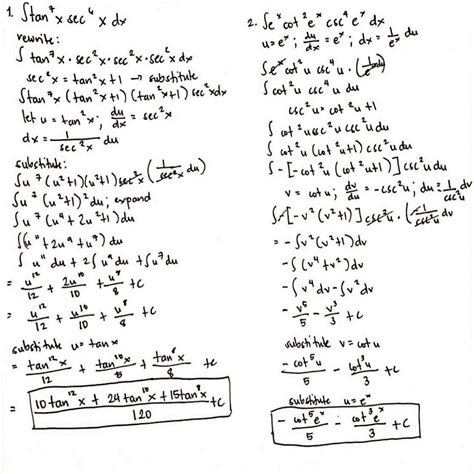 1. ∫tan⁷x sec⁴x dx
rewrite:
∫tan⁷x · sec²x · sec²x · sec²x dx
sec²x = tan²x + 1 → substitute
∫tan⁷x (tan²x+1) (tan²x+1) sec²x dx
let u = tan x ; du/dx = sec²x
dx = 1/sec²x du
substitute:
∫u⁷ (u²+1)(u²+1) sec²x (1/sec²x du)
∫u⁷ (u²+1)² du ; expand
∫u⁷ (u⁴ + 2u² + 1) du
∫(u¹¹ + 2u⁹ + u⁷) du
∫u¹¹ du + 2∫u⁹ du + ∫u⁷ du
= u¹²/12 + 2u¹⁰/10 + u⁸/8 + C
= u¹²/12 + u¹⁰/10 + u⁸/8 + C
substitute u = tan x
= tan¹²x/12 + tan¹⁰x/5 + tan⁸x/8 + C
= 10tan¹²x + 24tan¹⁰x + 15tan⁸x/120 + C
2. ∫eˣ cot²eˣ csc⁴eˣ dx
u = eˣ ; du/dx = eˣ ; dx = 1/eˣ du
∫eˣ cot²u csc⁴u · (1/eˣ du)
∫cot²u csc⁴u du
csc²u = cot²u + 1
∫cot²u csc²u csc²u du
∫cot²u (cot²u+1) csc²u du
∫-[-cot²u (cot²u+1)] csc²u du
v = cot u ; dv/du = -csc²u ; du = 1/-csc²u dv
∫-[-v²(v²+1)] csc²u · (-1/csc²u dv)
= -∫v²(v²+1)dv
-∫(v⁴+v²)dv
-∫v⁴dv - ∫v²dv
-v⁵/5 - v³/3 + C
substitute v = cot u
-cot⁵u/5 - cot³u/3 + C
substitute u = eˣ
-cot⁵eˣ/5 - cot³eˣ/3 + C